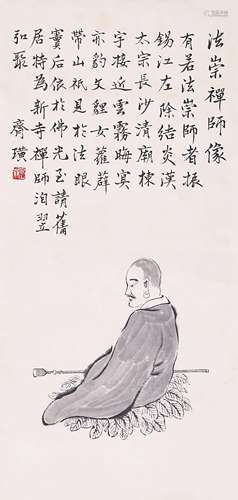 法崇禪師像
有若法崇師者振
錫江左除結炎漢
太宗長沙清廟棟
宇接近雲霧晦冥
赤豹文貍女蘿薜
帶山祇見於法眼
竇后依於佛光至請舊
居特為新寺禪師洎翌
弘聚 齊璜